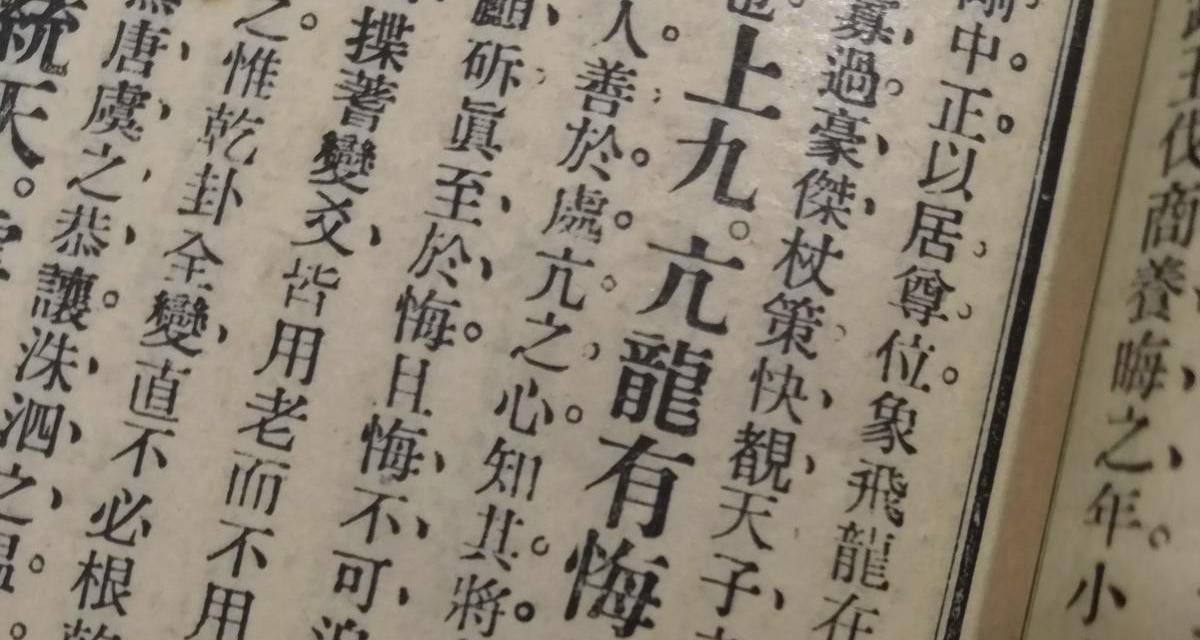 代商養晦之年。小
剛中正。以居尊位。象飛龍在
寡過。豪傑杖策快覩天子
上九。亢龍有悔
人善於處亢之心。知其。將
顧斫眞至於悔。且悔不可
揲蓍變爻皆用老而不用
之。惟乾卦全變直不必根
唐虞之恭。讓洙泗之温。
統天。